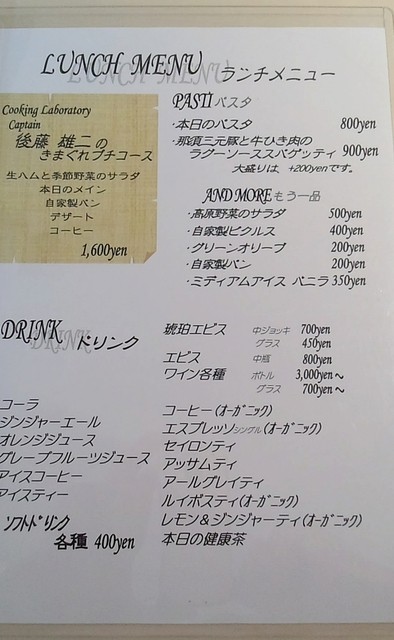 LUNCH MENU ランチメニュー
Cooking Laboratory
Captain
後藤 雄二の
きまぐれプチコース
生ハムと季節野菜のサラダ
本日のメイン
自家製パン
デザート
コーヒー
1,600yen
PASTI パスタ
・本日のパスタ 800yen
・那須三元豚と牛ひき肉の
ラグーソーススパゲッティ 900yen
大盛りは +200yenです。
AND MORE もう一品
・高原野菜のサラダ 500yen
・自家製ピクルス 400yen
・グリーンオリーブ 200yen
・自家製パン 200yen
・ミディアムアイス バニラ 350yen
DRINK ドリンク
琥珀エビス 中ジョッキ 700yen
グラス 450yen
エビス 中瓶 800yen
ワイン各種 ボトル 3,000yen～
グラス 700yen～
コーラ
ジンジャーエール
オレンジジュース
グレープフルーツジュース
アイスコーヒー
アイスティー
ソフトドリンク
各種 400yen
コーヒー(オーガニック)
エスプレッソシングル(オーガニック)
セイロンティ
アッサムティ
アールグレイティ
ルイボスティ(オーガニック)
レモン＆ジンジャーティ(オーガニック)
本日の健康茶